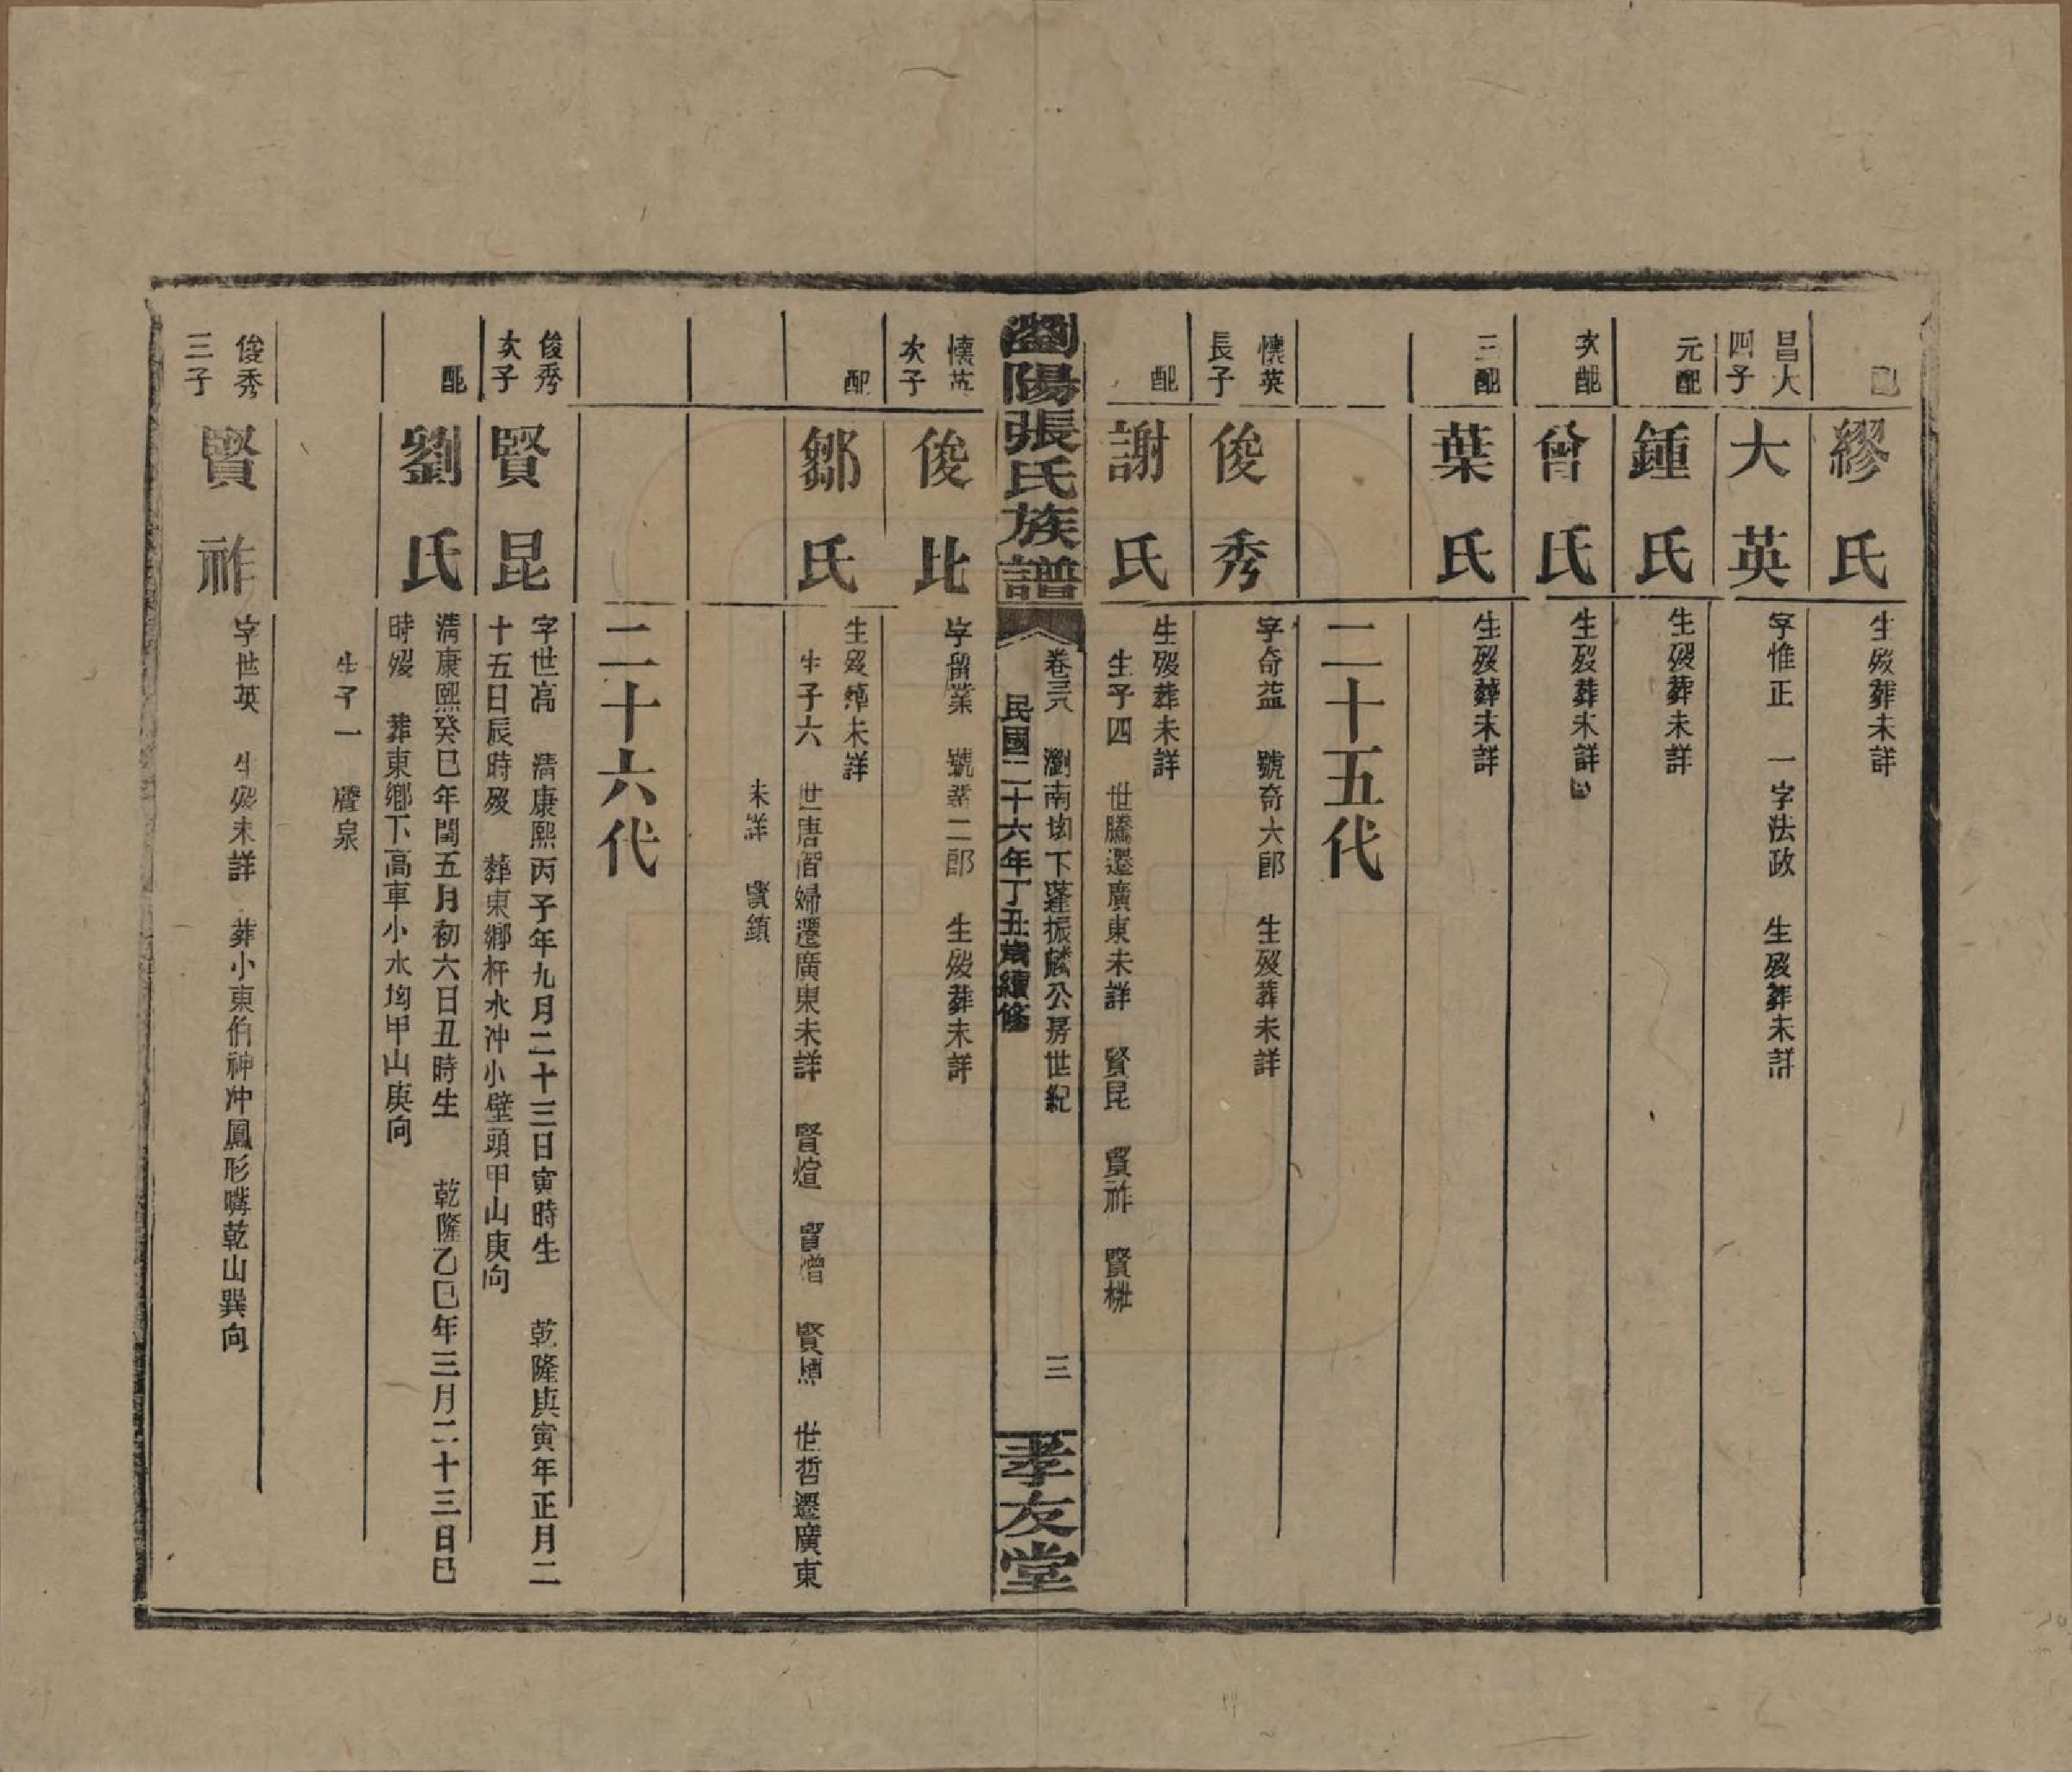 配
繆氏
生歿葬未詳
昌大
四子
大英
字惟正　一字法政　生歿葬未詳
元配
鍾氏
生歿葬未詳
次配
曾氏
生歿葬未詳
三配
葉氏
生歿葬未詳
二十五代
懷英
長子
俊秀
字奇益　號奇六郎　生歿葬未詳
配
謝氏
生歿葬未詳
生子四　世騰遷廣東未詳　賢昆　賢祚　賢
瀏陽張氏族譜
卷三八　瀏南坳下蓬振麟公房世紀　三
民國二十六年丁丑歲續修
孝友堂
懷英
次子
俊比
字留業　號　二郎　生歿葬未詳
配
鄒氏
生歿葬未詳
生子六　世唐偕婦遷廣東未詳　賢煊　賢僧　賢　世哲遷廣東
未詳　賢鎮
二十六代
俊秀
次子
賢昆
字世高　清康熙丙子年九月二十三日寅時生　乾隆庚寅年正月二
十五日辰時歿　葬東鄉杆水冲小壁頭甲山庚向
配
劉氏
清康熙癸巳年閏五月初六日丑時生　乾隆乙巳年三月二十三日巳
時歿　葬東鄉下高車小水坳甲山庚向
生子一　泉
俊秀
三子
賢祚
字世英　生歿未詳　葬小東伯神冲鳳形嘴乾山巽向